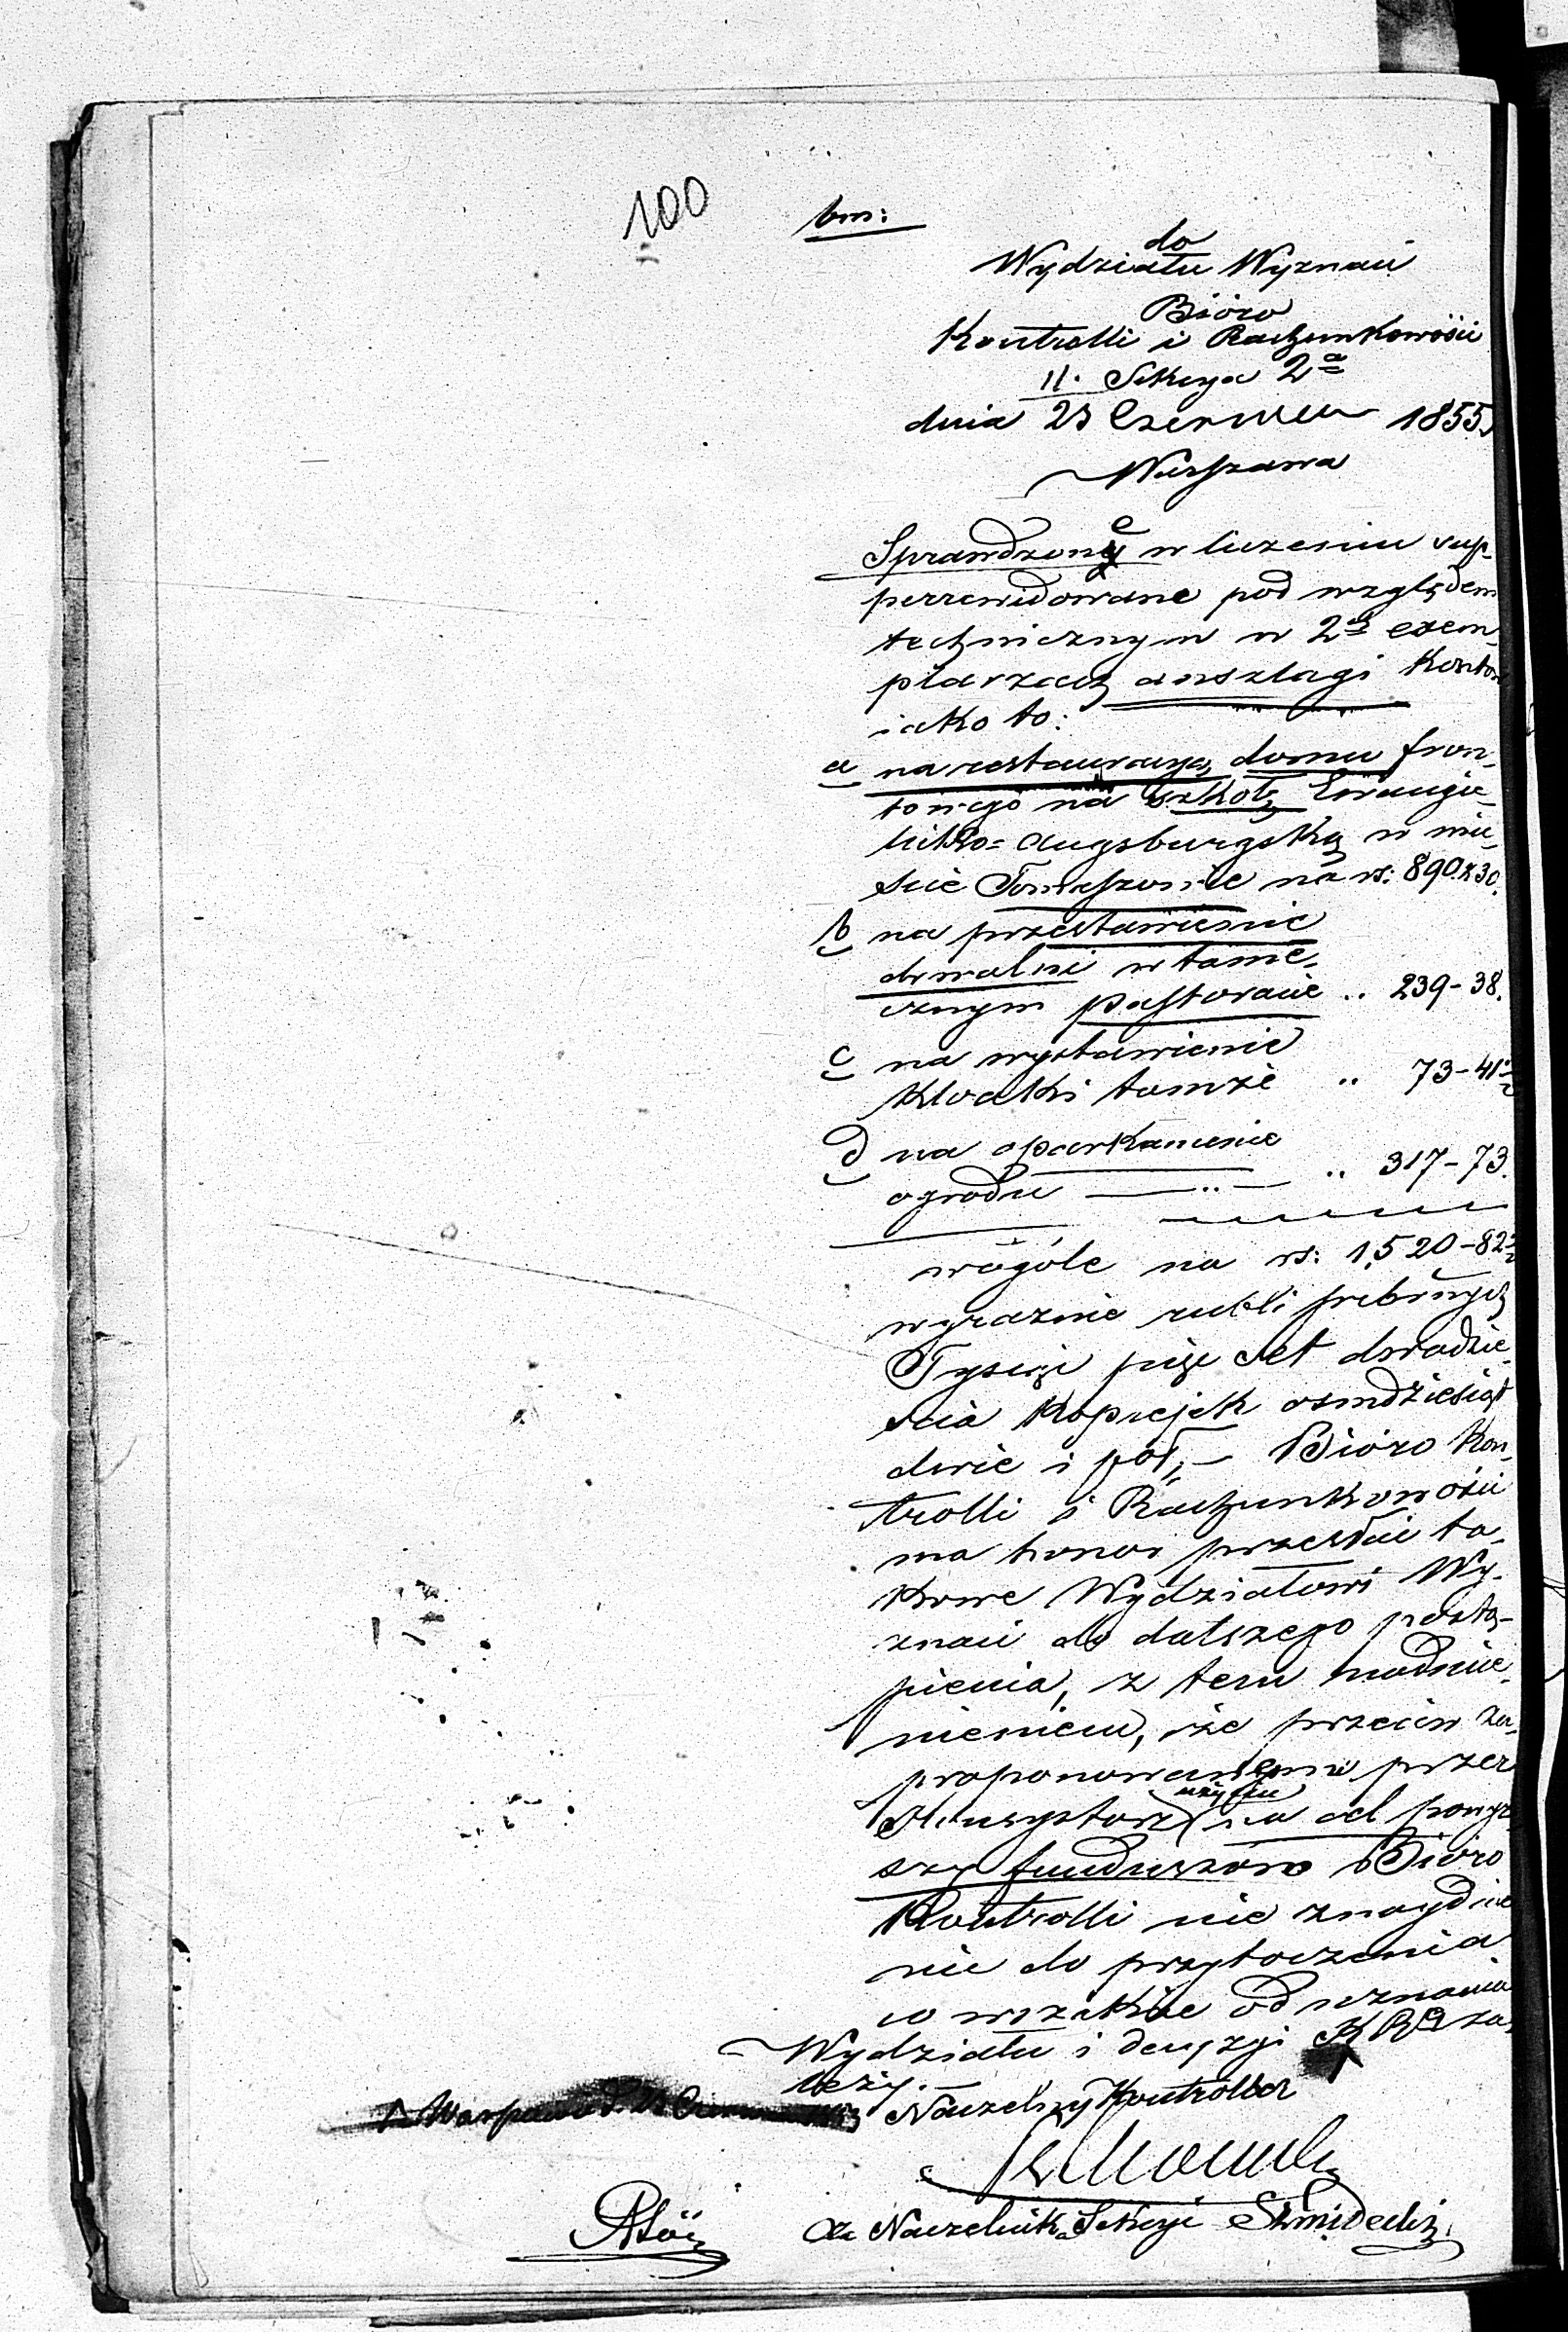 100
bm:
do
Wydziału Wyznań
Bióro
Kontrolli i Rachunkowości
II. Sekcya 2a
dnia 23 Czerwca 1855
Warszawa
Sprawdzone w liczeniu sup-
perrewidowane pod względem
technicznym w 2ch exem-
plarzach anszlagi Kosztow
iako to:
a na restauracyą domu fron-
towego na szkołę Ewangie-
licko=Augsburgską w mie-
ście Tomaszowie na rs: 890 k 30.
b na przestawienie
drwalni w tame-
cznym pastoracie .. 239-38.
c na wystawienie
kloaki tamże .. 73-41½
d na oparkanienie
ogrodu — .. — .. 317-73.
wogóle na rs: 1,520-82½
wyraznie rubli srebrnych
Tysiąc pięć set dwadzie-
scia kopiejek osmdziesiąt
dwie i pół, — Bióro Kon-
trolli i Rachunkowości
ma honor przesłać ta-
kowe Wydziałowi Wy-
znań do dalszego postą-
pienia, z tem nadmie-
nieniem, że przeciw za-
proponowanemu przez
Konsystorz użyciu na cel powyż-
szy funduszów Bióro
Kontrolli nie znayduie
nic do przytoczenia
co wszakże od uznania
Wydziału i decyzyi K R za-
leży.—
Naczelny Kontroller
za Naczelnika Sekcyi